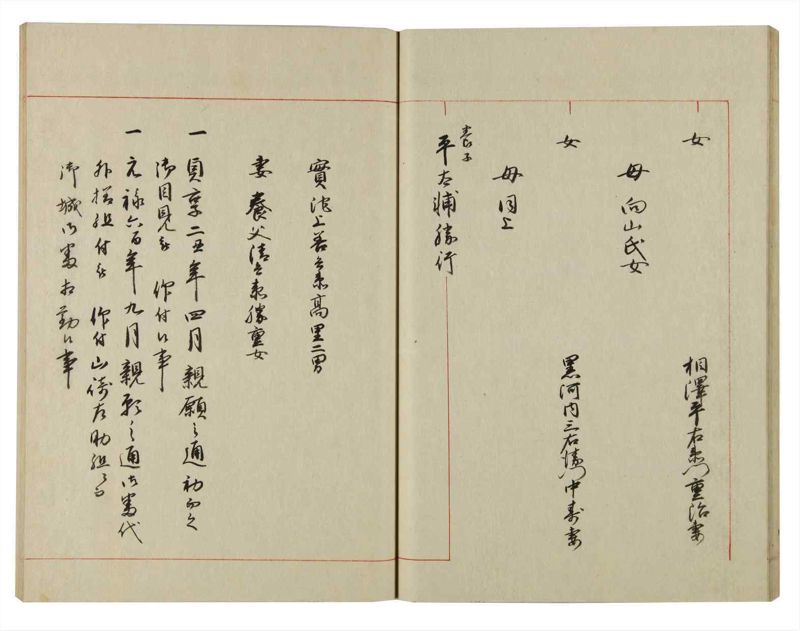 女
相澤平右衛門重治妻
母 向山氏女
女
黒河内三右衛門中壽妻
母 同上
養子
平太輔勝行
實 池上善兵衛高里二男
妻 養父清兵衛勝重女
一 貞享二丑年四月親願之通初而之
御目見被 仰付候事
一 元禄六酉年九月親願之通御番代
外様組付被 仰付山崎左助組ニ而
御城御番相勤候事